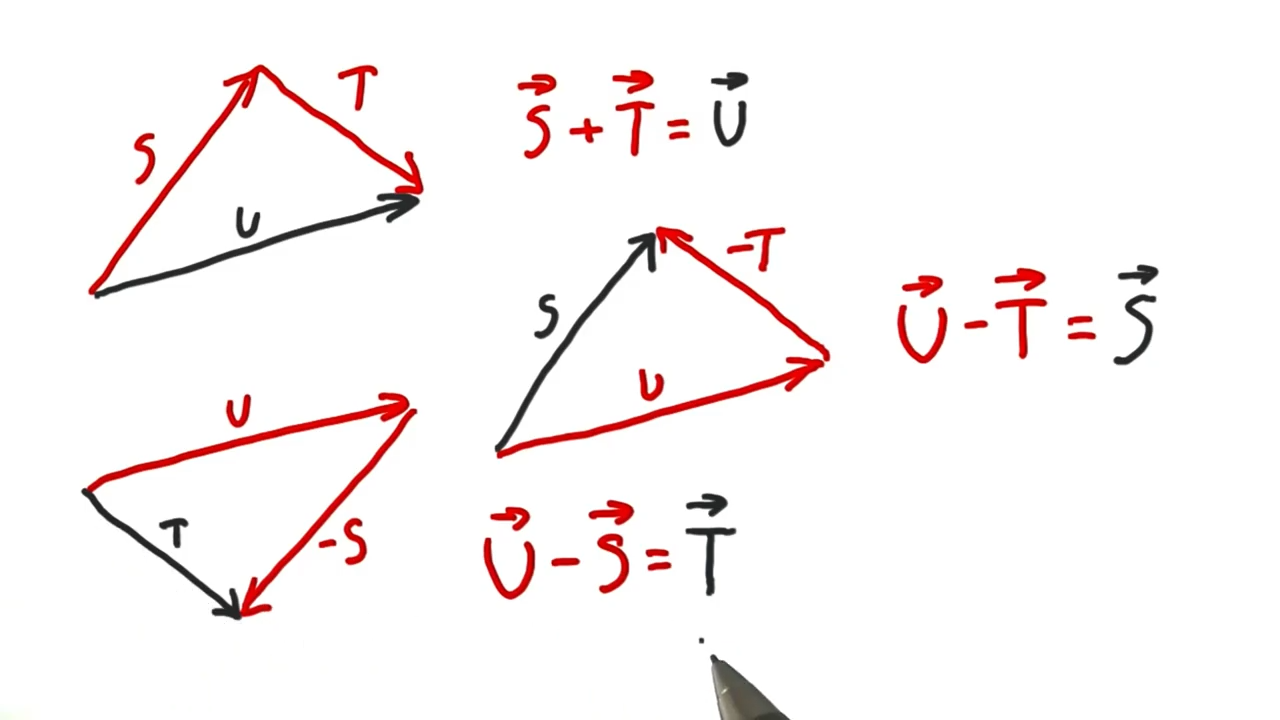 S
T
U
S + T = U
S
-T
U
U - T = S
U
T
-S
U - S = T